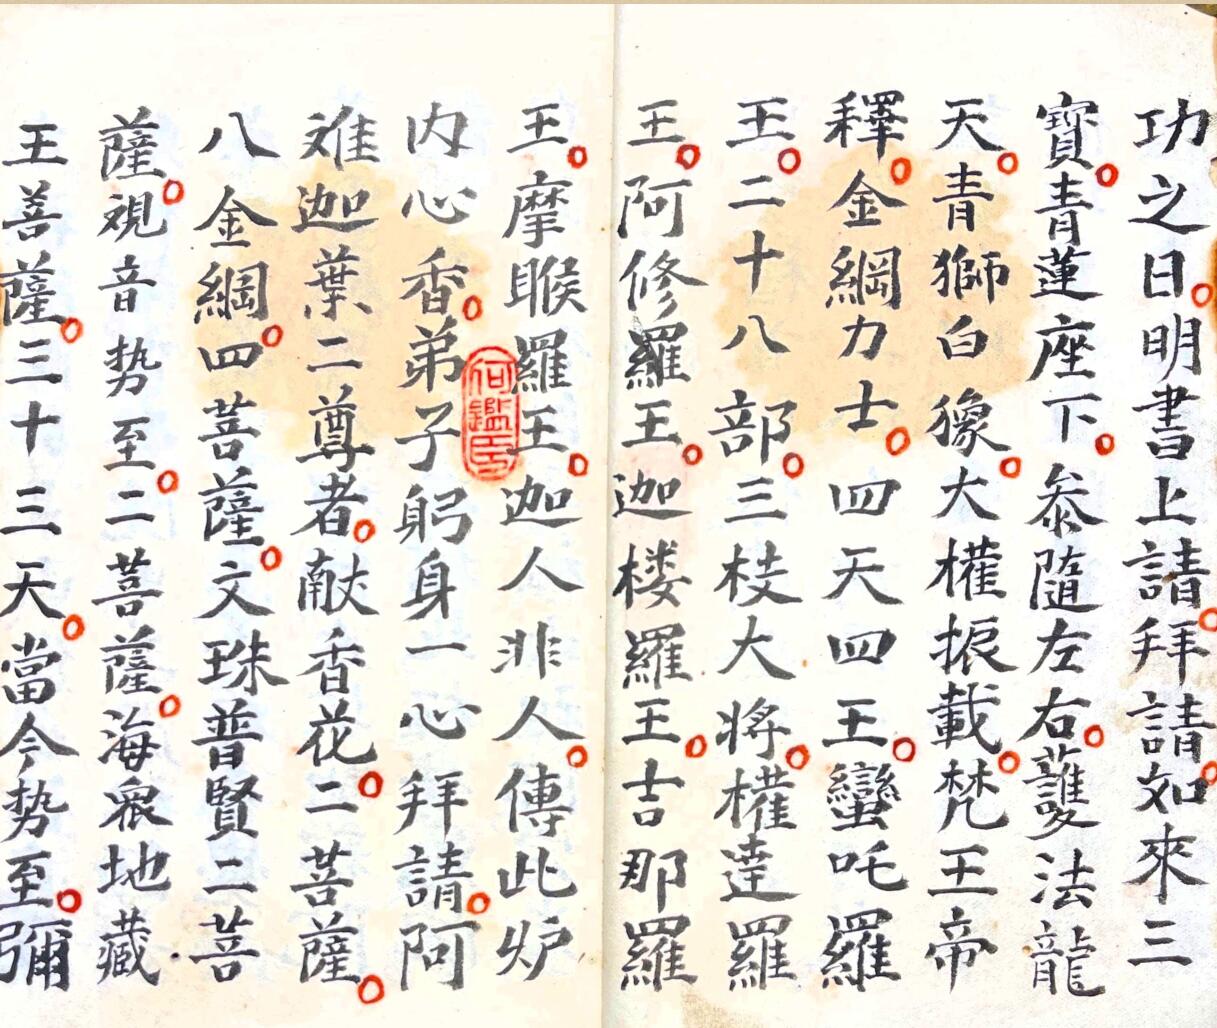 功之日明書上請拜請如來三
寶青蓮座下叅隨左右護法龍
天青獅白獴大權振載梵王帝
釋金綱力士四天四王蠻吒羅
王二十八部三枝大将權達羅
王阿修羅王迦楼羅王吉那羅
王摩睺羅王迦人非人傳此炉
内心香弟子躬身一心拜請阿
难迦葉二尊者献香花二菩薩
八金綱四菩薩文珠普賢二菩
薩視音势至二菩薩海衆地藏
王菩薩三十三天當今势至彌
何鑑臣